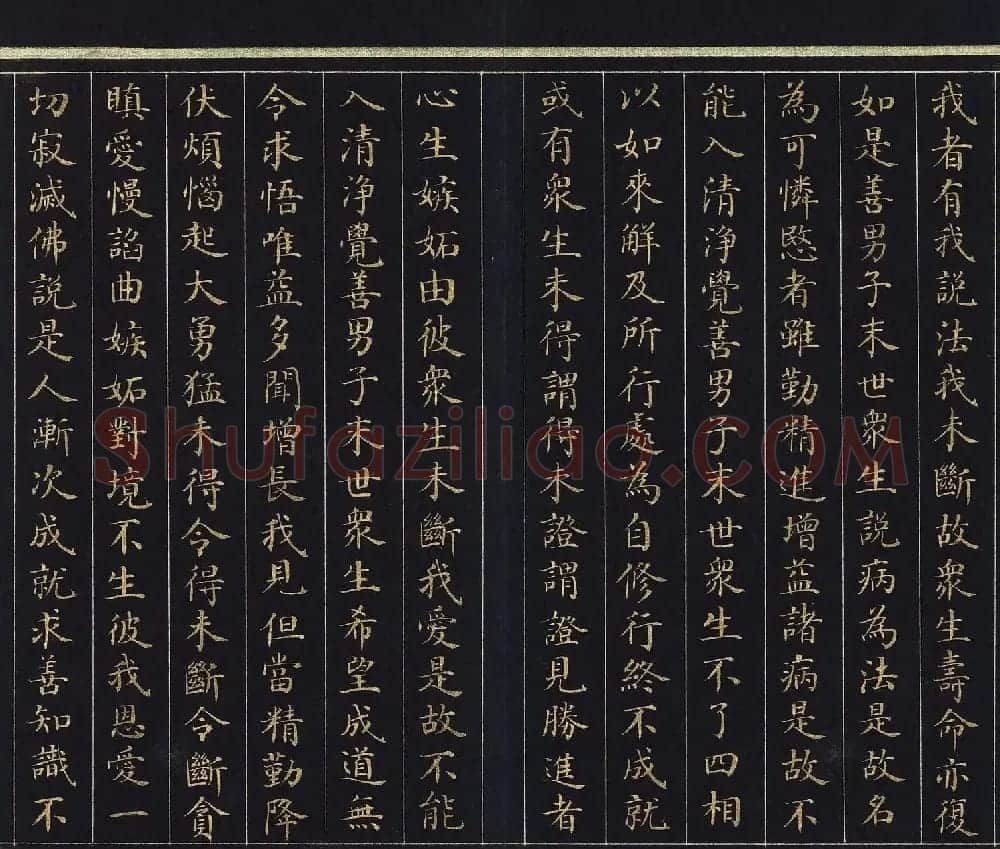 我者有我說法我未斷故衆生壽命亦復
如是善男子末世衆生說病為法是故名
為可憐愍者雖勤精進增益諸病是故不
能入清淨覺善男子末世衆生不了四相
以如來解及所行處為自修行終不成就
或有衆生未得謂得未證謂證見勝進者
心生嫉妬由彼衆生未斷我愛是故不能
入清淨覺善男子末世衆生希望成道無
令求悟唯益多聞增長我見但當精勤降
伏煩惱起大勇猛未得令得未斷令斷貪
瞋愛慢諂曲嫉妬對境不生彼我恩愛一
切寂滅佛說是人漸次成就求善知識不
Shufaziliao.COM